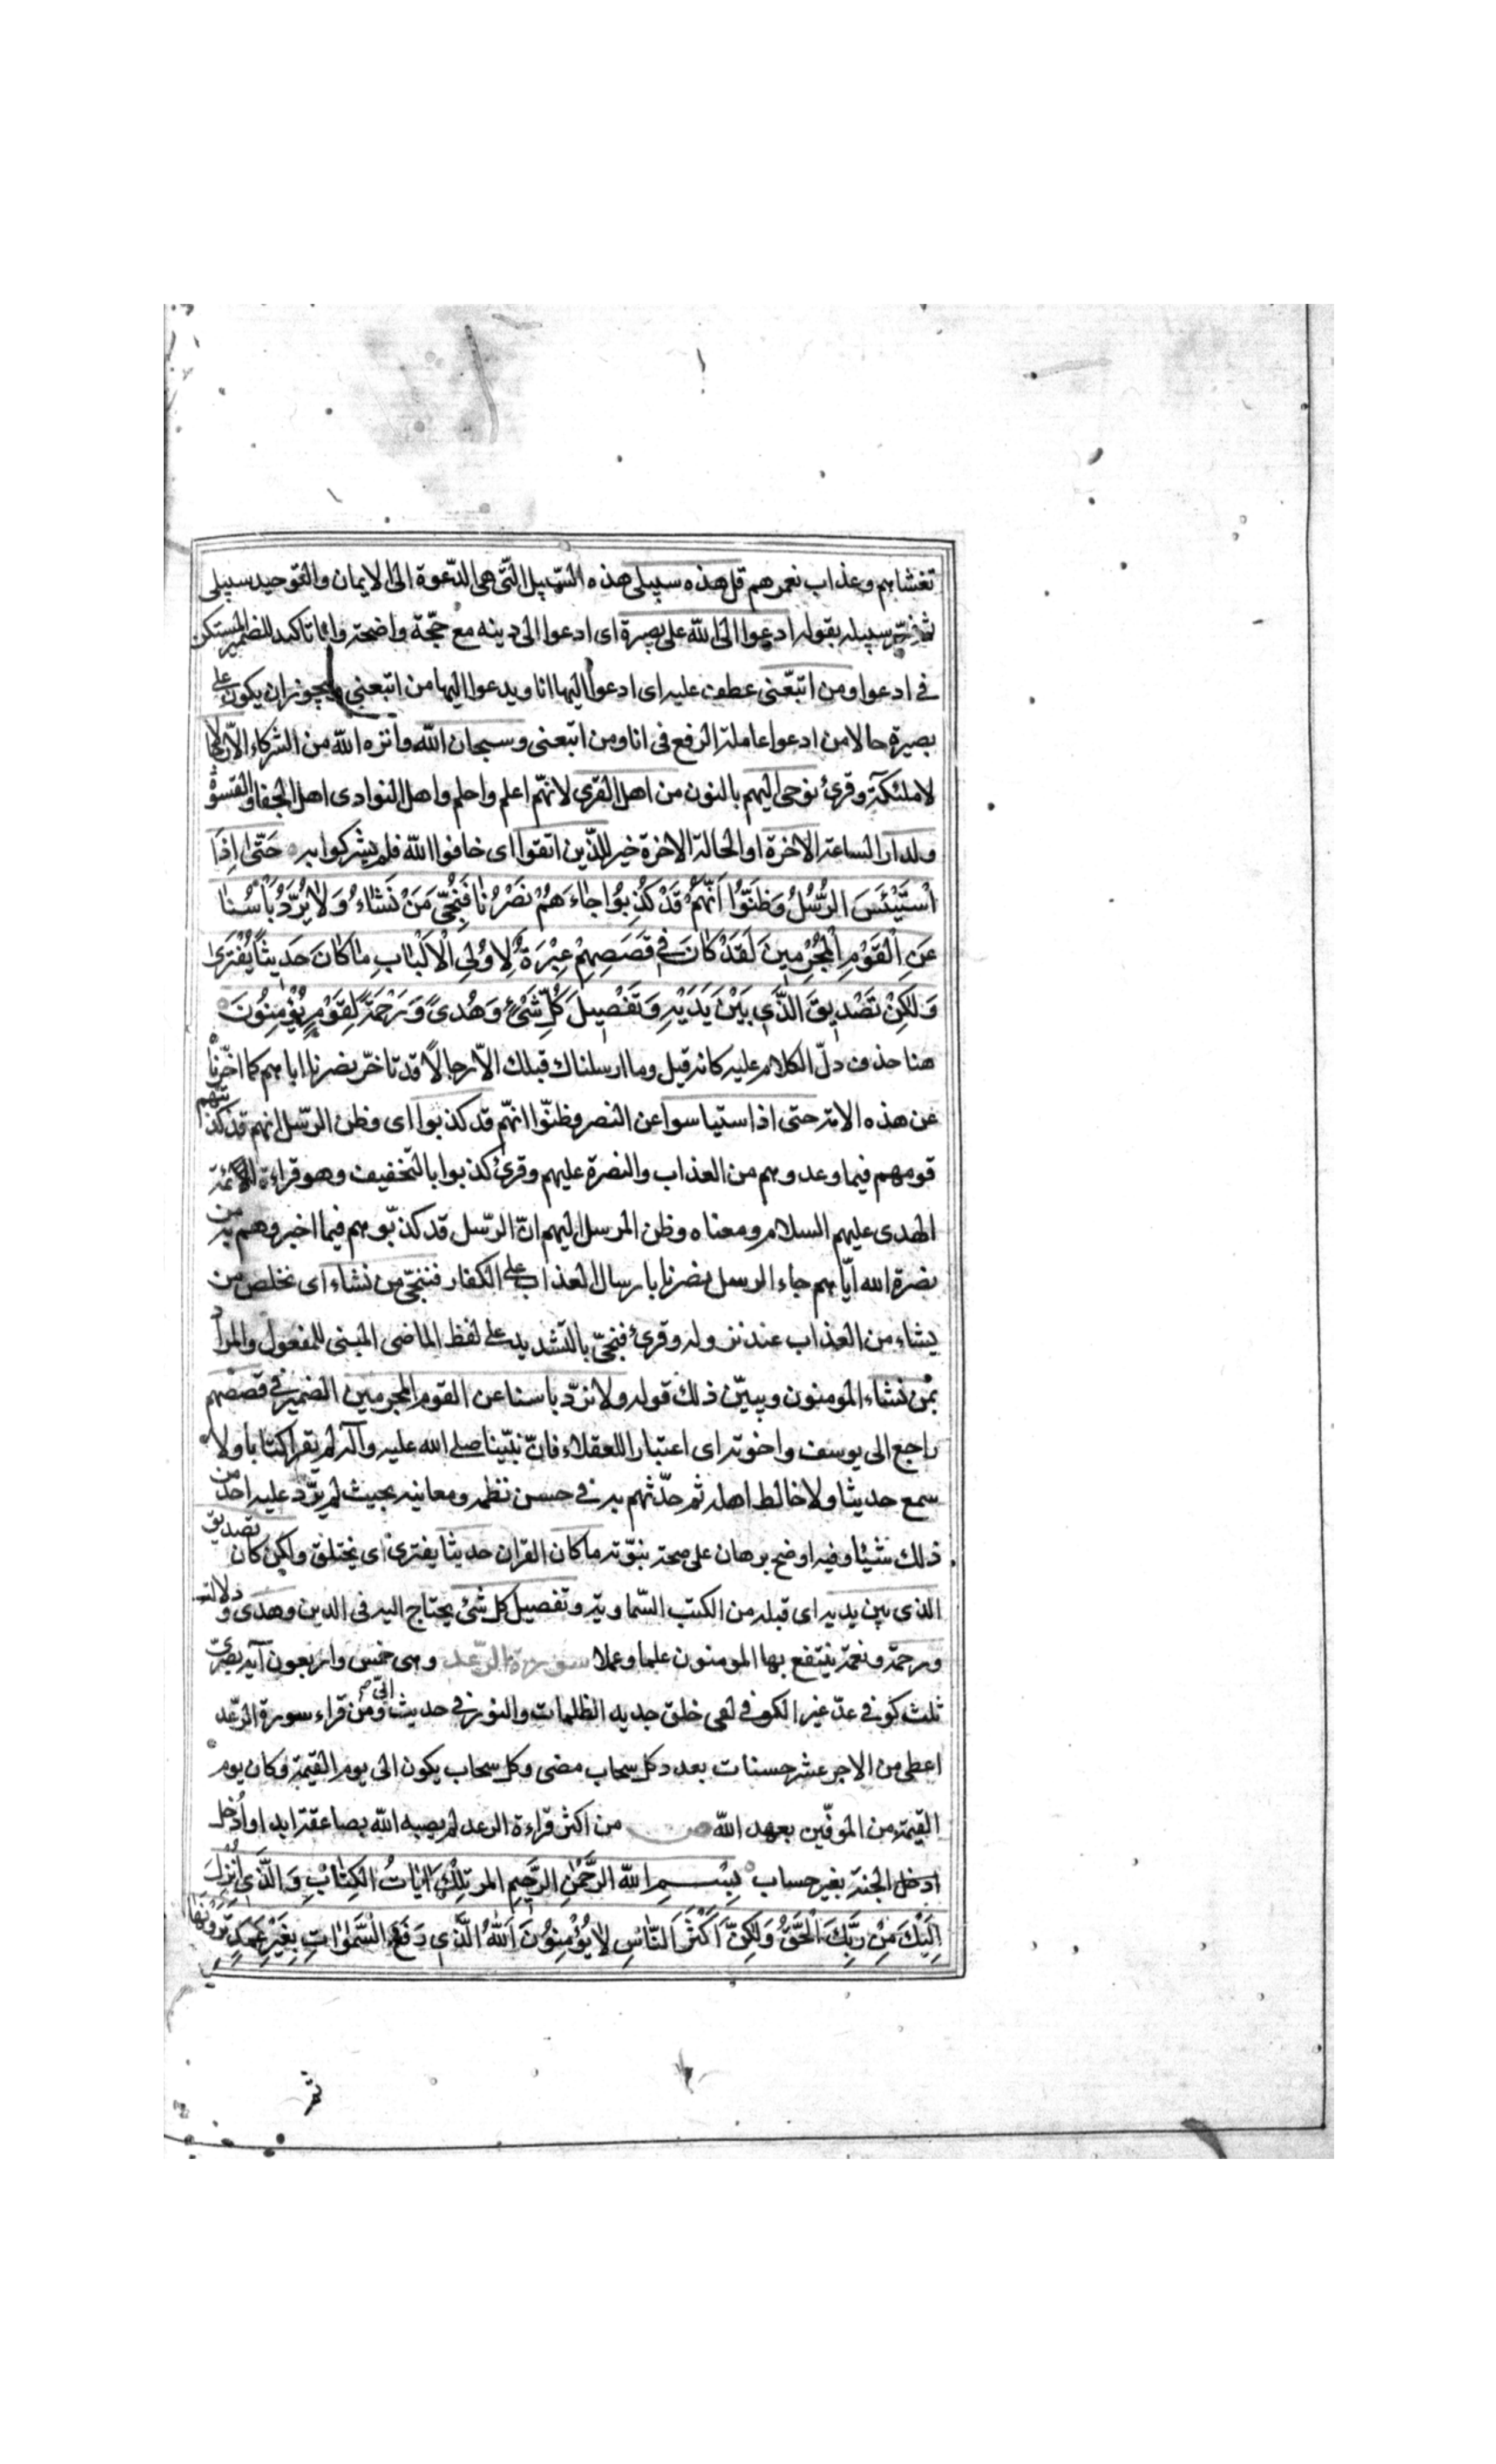 تغشاهم وعذاب نعمرهم قل هذه سبيلى هذه السّبيل الّتى هى الدّعوة الى الايمان والتوحيد سبيلى
ثم فسّر سبيله بقوله ادعوا الى الله على بصيرة اى ادعوا الى دينه مع حجّة واضحة وانا تاكيد للضمير المستكن
فى ادعوا ومن اتبعّنى عطف عليه اى ادعوا اليها انا ويدعوا اليها من اتبعنى ويجوز ان يكون على
بصيرة حالا من ادعوا عاملة الرفع فى انا ومن اتبعنى وسبحان الله وانزه الله من الشركاء الّا رجالا
لا ملئكة وقرئ نوحى اليهم بالنون من اهل القرى لانهّم اعلم واحلم واهل البوادى اهل الجفا والقسوة
ولدار الساعة الاخرة او الحالة الاخرة خير للّذين اتقوا اى خافوا الله فلم يشركوا به حَتّىٰ اِذَا
اسْتَيْئَسَ الرُّسُلُ وَظَنّوُا اَنَّهُمْ قَدْ كُذِبوُا جٰاءَهُمْ نَصْرُنٰا فَنُجِّىَ مَنْ نَشٰاءُ وَلٰا يُرَدُّ بَأْسُنٰا
عَنِ الْقَوْمِ الْمُجْرِمِينَ لَقَدْ كٰانَ فِى قَصَصِهِمْ عِبْرَةٌ لِاوُلِى الْاَلْبٰابِ مٰا كٰانَ حَديثاً يُفْتَرىٰ
وَلكِنْ تَصْديقَ الَّذى بَيْنَ يَدَيْهِ وَتَفْصيلَ كُلِّ شَىْءٍ وَهُدىً وَرَحْمَةً لِقَوْمٍ يُؤْمِنُونَ
هنا حذف دلّ الكلام عليه كانه قيل وما ارسلناك قبلك الّا رجالًا قد تاخّر نصرنا اياهم كما اخّرنا
عن هذه الامة حتى اذا ستياسوا عن النصر وظنّوا انهّم قد كذبوا اى وظن الرّسل انهم قد كذبتهم
قومهم فيما وعدوهم من العذاب والنصرة عليهم وقرئ كذبوا بالتخفيف وهو قراءة الائمّة
الهدى عليهم السلام ومعناه وظن المرسل اليهم انّ الرّسل قد كذبّوهم فيما اخبروهم به من
نصرة الله ايّاهم جاء الرسل نصرنا بارسال العذاب على الكفار فننجّى من نشاء اى نخلص من
يشاء من العذاب عند نزوله وقرئ فنجىّ بالتشديد على لفظ الماضى المبنى للمفعول والمراد
بمن نشاء المومنون ويبيّن ذلك قوله ولا نردّ باسنا عن القوم المجرمين الضمير فى قصصهم
راجع الى يوسف واخوته اى اعتبارا للعقلاء فانّ نبّينا صلى الله عليه وآله لم يقرا كتابا ولا
سمع حديثا ولا خالط اهله ثم حدّثهم به فى حسن نظمه ومعانيه بحيث لم يردّ عليه احد من
ذلك شيئا وفيه اوضح برهان على صحة نبوّته ما كان القران حديثا يفترى اى يختلق ولكن كان تصديق
الذى بين يديه اى قبله من الكتب السّماوية وتفصيل كل شئ يحتاج اليه فى الدين وهدى ودلالة
ورحمة ونعمة ينتفع بها المومنون علما وعملا سورة الرّعد وهى خمس واربعون آية بصرىّ
ثلث كوفى عدّ غير الكوفى لفى خلق جديد الظلمات والنور فى حديث ابىّ ومن قراء سورة الرّعد
اعطى من الاجر عشر حسنات بعدد كل سحاب مضى وكل سحاب يكون الى يوم القيمة وكان يوم
القيمة من الموفّين بعهد الله من اكثر قراءة الرعد لم يصبه الله بصاعقة ابدا واُدخل
ادخل الجنة بغير حساب بِسْمِ اللهِ الرَّحْمٰنِ الرَّحيمِ المر تِلْكَ اٰيٰاتُ الْكِتٰابِ وَالَّذى اُنْزِلَ
اِلَيْكَ مِنْ رَبِّكَ الْحَقُّ وَلٰكِنَّ اَكْثَرَ النّٰاسِ لا يُؤْمِنُونَ اَللهُ الَّذى رَفَعَ السَّمٰوٰاتِ بِغَيْرِ عَمَدٍ تَرَوْنَهٰا